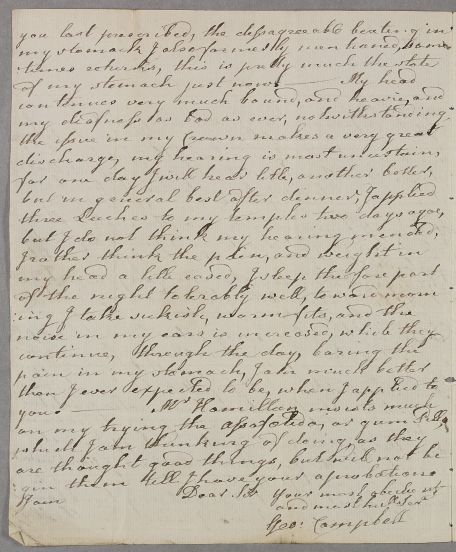 you last prescribed, the dissagreeable beating in
my stomach I also formerly mentioned, some
times returns, this is pretty much the state
of my stomach just now — My head
continues very much bound, and heavie, and
my deafness as bad as ever, notwithstanding
the issue in my Crown makes a very great
discharge, my hearing is most uncertain,
for one day I will hear litle, another better,
but in general best after dinner, I applied
three Leeches to my temples two days agoe,
but I do not think my hearing mended,
I rather think the pain, and weight in
my head a litle eased, I sleep the fore part
of the night tolerably well, toward morn
ing I take sickish, warm fits, and the
noise in my ears is increased, while they
continue, through the day, baring the
pain in my stomach, I am much better
than I ever expected to be, when I applied to
you. — Mr Hamilton insists much
on my trying the assafotida, or gum Pills,
which I am thinking of doing, as they
are thought good things, but will not be
gin them till I have your aprobation
I am Dear Sir Your most obedient
and most hule Servt
Geo: Campbell